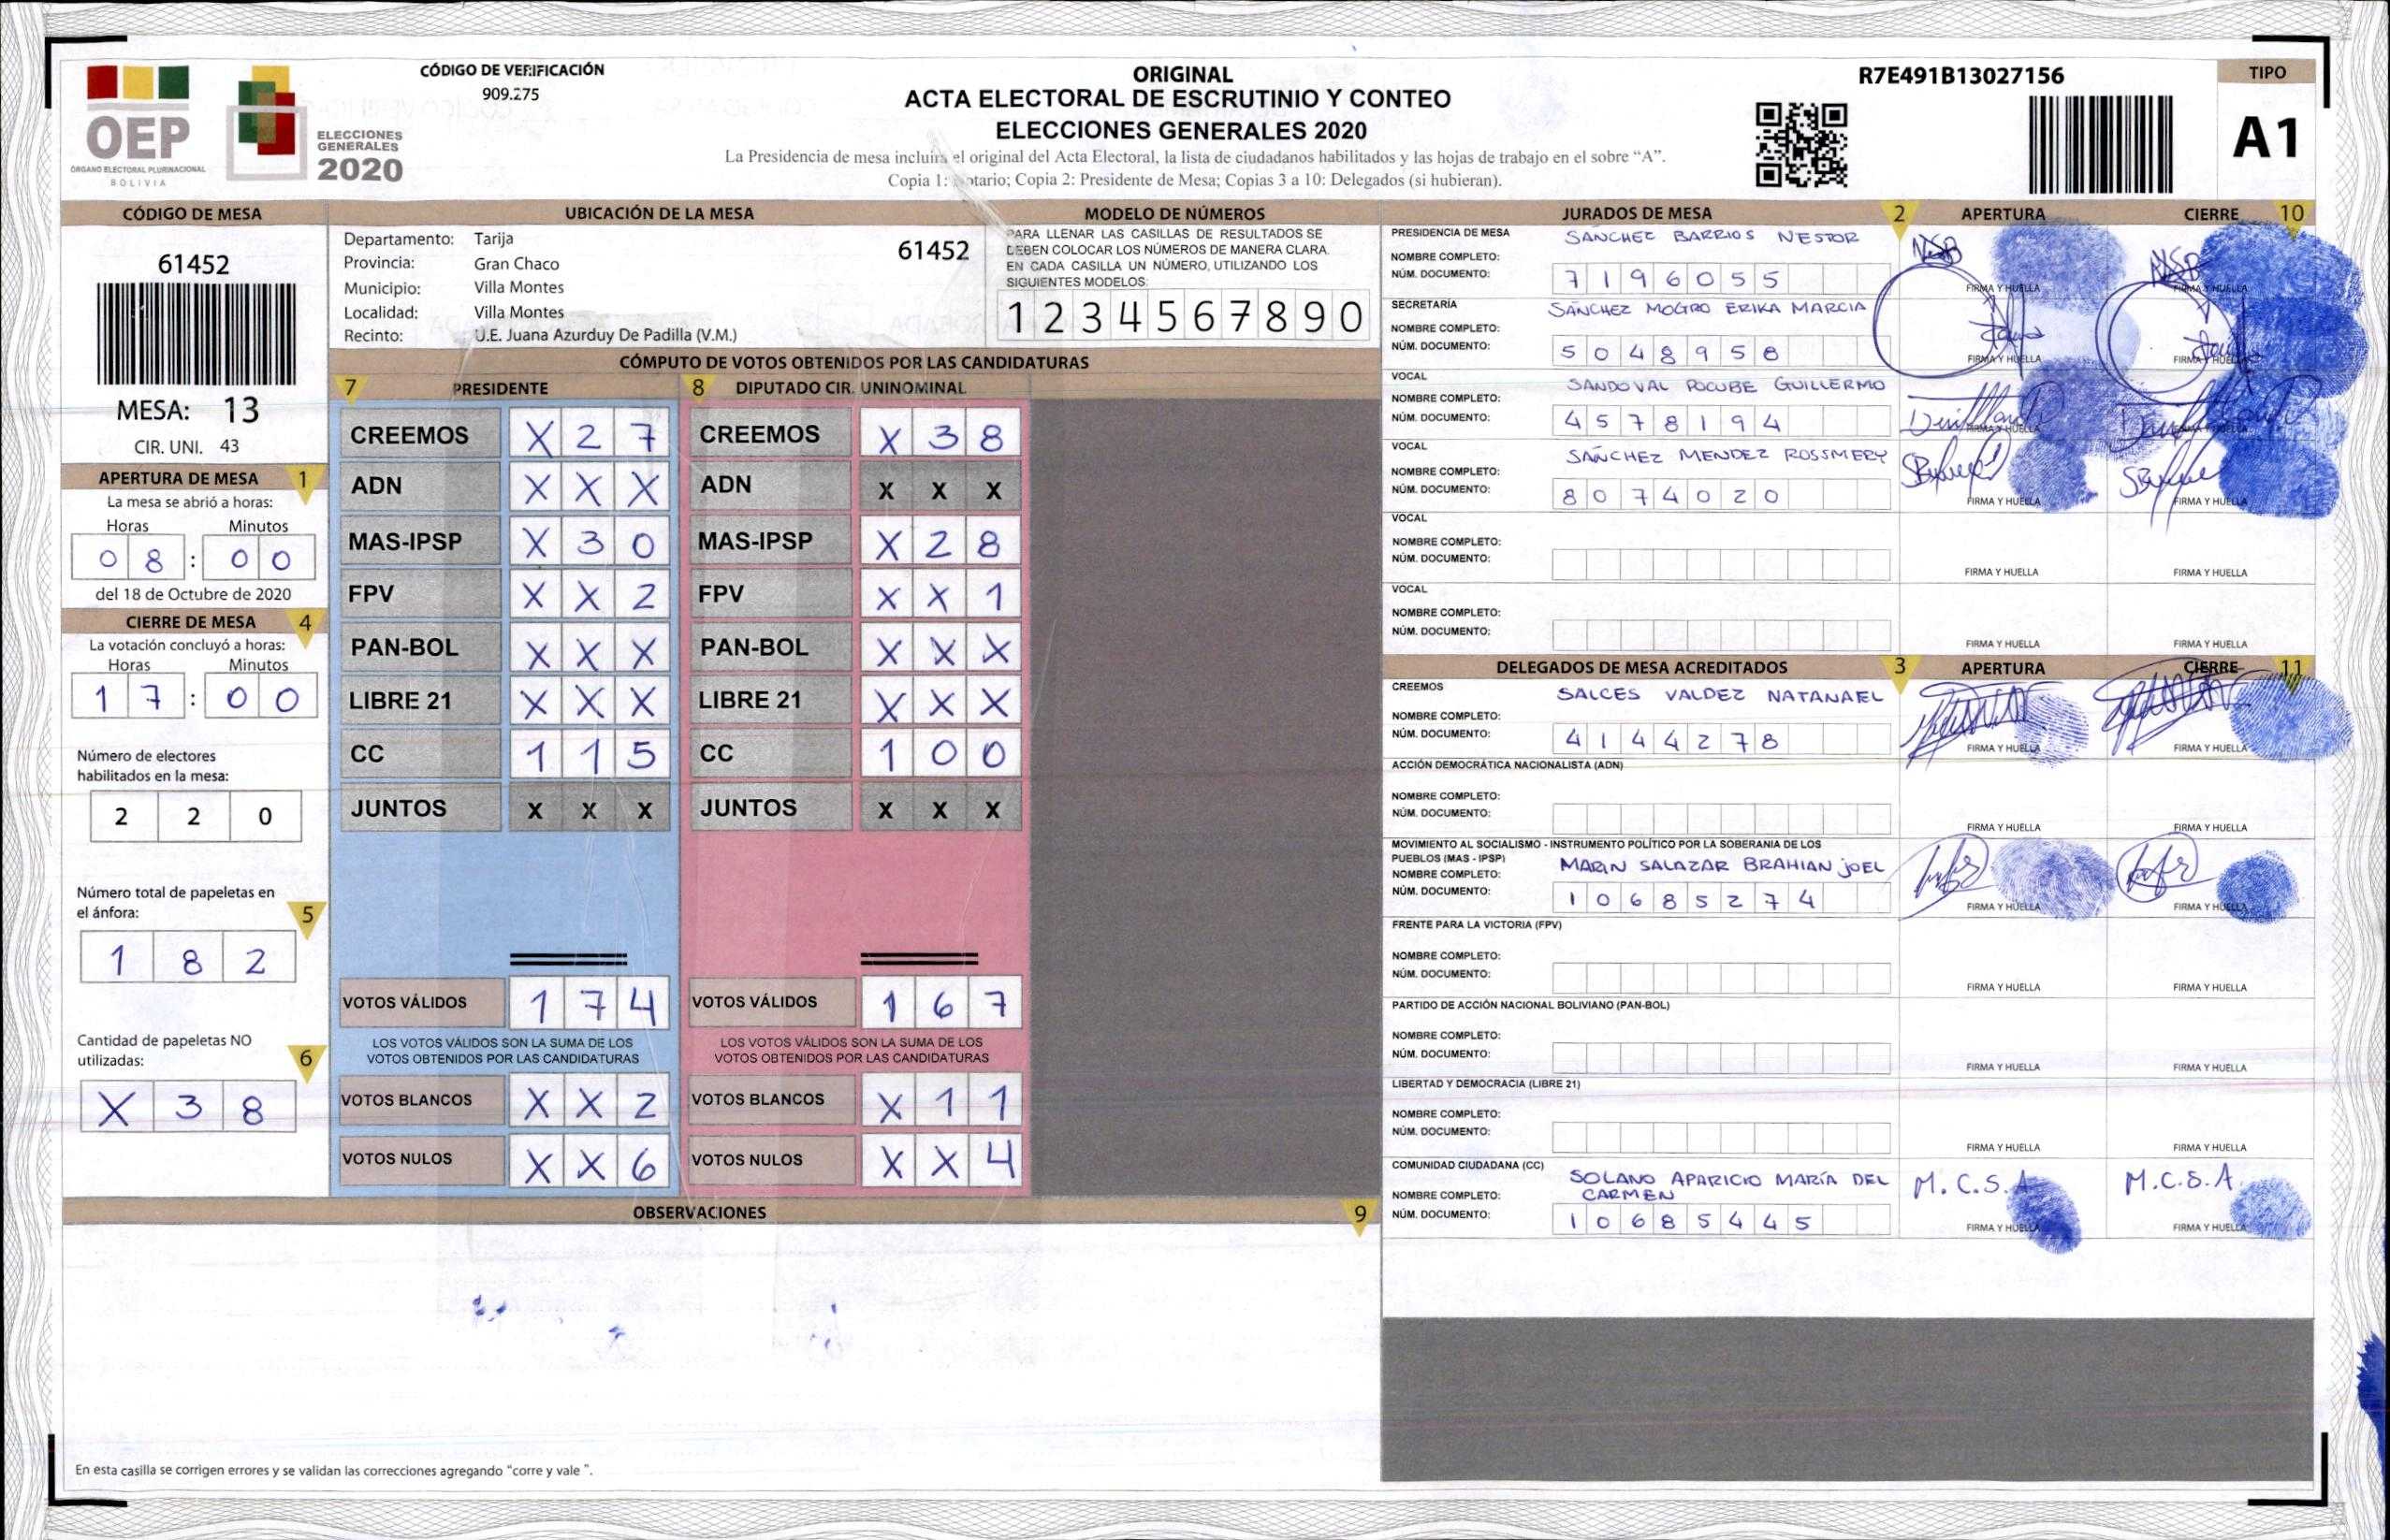 OEP
ÓRGANO ELECTORAL PLURINACIONAL
BOLIVIA
ELECCIONES
GENERALES
2020
CÓDIGO DE VERIFICACIÓN
909.275
ORIGINAL
ACTA ELECTORAL DE ESCRUTINIO Y CONTEO
ELECCIONES GENERALES 2020
La Presidencia de mesa incluirá el original del Acta Electoral, la lista de ciudadanos habilitados y las hojas de trabajo en el sobre “A”.
Copia 1: Notario; Copia 2: Presidente de Mesa; Copias 3 a 10: Delegados (si hubieran).
R7E491B13027156
TIPO
A1
CÓDIGO DE MESA
61452
MESA: 13
CIR. UNI. 43
APERTURA DE MESA 1
La mesa se abrió a horas:
Horas Minutos
0 8 : 0 0
del 18 de Octubre de 2020
CIERRE DE MESA 4
La votación concluyó a horas:
Horas Minutos
1 7 : 0 0
Número de electores
habilitados en la mesa:
2 2 0
Número total de papeletas en
el ánfora: 5
1 8 2
Cantidad de papeletas NO
utilizadas: 6
X 3 8
UBICACIÓN DE LA MESA
Departamento: Tarija
Provincia: Gran Chaco
Municipio: Villa Montes
Localidad: Villa Montes
Recinto: U.E. Juana Azurduy De Padilla (V.M.)
61452
MODELO DE NÚMEROS
PARA LLENAR LAS CASILLAS DE RESULTADOS SE
DEBEN COLOCAR LOS NÚMEROS DE MANERA CLARA.
EN CADA CASILLA UN NÚMERO, UTILIZANDO LOS
SIGUIENTES MODELOS:
1 2 3 4 5 6 7 8 9 0
CÓMPUTO DE VOTOS OBTENIDOS POR LAS CANDIDATURAS
7 PRESIDENTE 8 DIPUTADO CIR. UNINOMINAL
CREEMOS X 2 7 CREEMOS X 3 8
ADN X X X ADN X X X
MAS-IPSP X 3 0 MAS-IPSP X 2 8
FPV X X 2 FPV X X 1
PAN-BOL X X X PAN-BOL X X X
LIBRE 21 X X X LIBRE 21 X X X
CC 1 1 5 CC 1 0 0
JUNTOS X X X JUNTOS X X X
VOTOS VÁLIDOS 1 7 4 VOTOS VÁLIDOS 1 6 7
LOS VOTOS VÁLIDOS SON LA SUMA DE LOS LOS VOTOS VÁLIDOS SON LA SUMA DE LOS
VOTOS OBTENIDOS POR LAS CANDIDATURAS VOTOS OBTENIDOS POR LAS CANDIDATURAS
VOTOS BLANCOS X X 2 VOTOS BLANCOS X 1 1
VOTOS NULOS X X 6 VOTOS NULOS X X 4
OBSERVACIONES 9
En esta casilla se corrigen errores y se validan las correcciones agregando “corre y vale ”.
JURADOS DE MESA 2 APERTURA CIERRE 10
PRESIDENCIA DE MESA SANCHEZ BARRIOS NESTOR
NOMBRE COMPLETO: NSB NSB
NÚM. DOCUMENTO: 7 1 9 6 0 5 5
FIRMA Y HUELLA FIRMA Y HUELLA
SECRETARÍA SÁNCHEZ MOGRO ERIKA MARCIA
NOMBRE COMPLETO:
NÚM. DOCUMENTO: 5 0 4 8 9 5 8
FIRMA Y HUELLA FIRMA Y HUELLA
VOCAL SANDOVAL POCUBE GUILLERMO
NOMBRE COMPLETO:
NÚM. DOCUMENTO: 4 5 7 8 1 9 4
FIRMA Y HUELLA FIRMA Y HUELLA
VOCAL SANCHEZ MENDEZ ROSSMERY
NOMBRE COMPLETO:
NÚM. DOCUMENTO: 8 0 7 4 0 2 0
FIRMA Y HUELLA FIRMA Y HUELLA
VOCAL
NOMBRE COMPLETO:
NÚM. DOCUMENTO:
FIRMA Y HUELLA FIRMA Y HUELLA
VOCAL
NOMBRE COMPLETO:
NÚM. DOCUMENTO:
FIRMA Y HUELLA FIRMA Y HUELLA
DELEGADOS DE MESA ACREDITADOS 3 APERTURA CIERRE 11
CREEMOS SALCES VALDEZ NATANAEL
NOMBRE COMPLETO:
NÚM. DOCUMENTO: 4 1 4 4 2 7 8
FIRMA Y HUELLA FIRMA Y HUELLA
ACCIÓN DEMOCRÁTICA NACIONALISTA (ADN)
NOMBRE COMPLETO:
NÚM. DOCUMENTO:
FIRMA Y HUELLA FIRMA Y HUELLA
MOVIMIENTO AL SOCIALISMO - INSTRUMENTO POLÍTICO POR LA SOBERANIA DE LOS
PUEBLOS (MAS - IPSP) MARIN SALAZAR BRAHIAN JOEL
NOMBRE COMPLETO:
NÚM. DOCUMENTO: 1 0 6 8 5 2 7 4
FIRMA Y HUELLA FIRMA Y HUELLA
FRENTE PARA LA VICTORIA (FPV)
NOMBRE COMPLETO:
NÚM. DOCUMENTO:
FIRMA Y HUELLA FIRMA Y HUELLA
PARTIDO DE ACCIÓN NACIONAL BOLIVIANO (PAN-BOL)
NOMBRE COMPLETO:
NÚM. DOCUMENTO:
FIRMA Y HUELLA FIRMA Y HUELLA
LIBERTAD Y DEMOCRACIA (LIBRE 21)
NOMBRE COMPLETO:
NÚM. DOCUMENTO:
FIRMA Y HUELLA FIRMA Y HUELLA
COMUNIDAD CIUDADANA (CC) SOLANO APARICIO MARÍA DEL
NOMBRE COMPLETO: CARMEN M.C.S.A M.C.S.A.
NÚM. DOCUMENTO: 1 0 6 8 5 4 4 5
FIRMA Y HUELLA FIRMA Y HUELLA